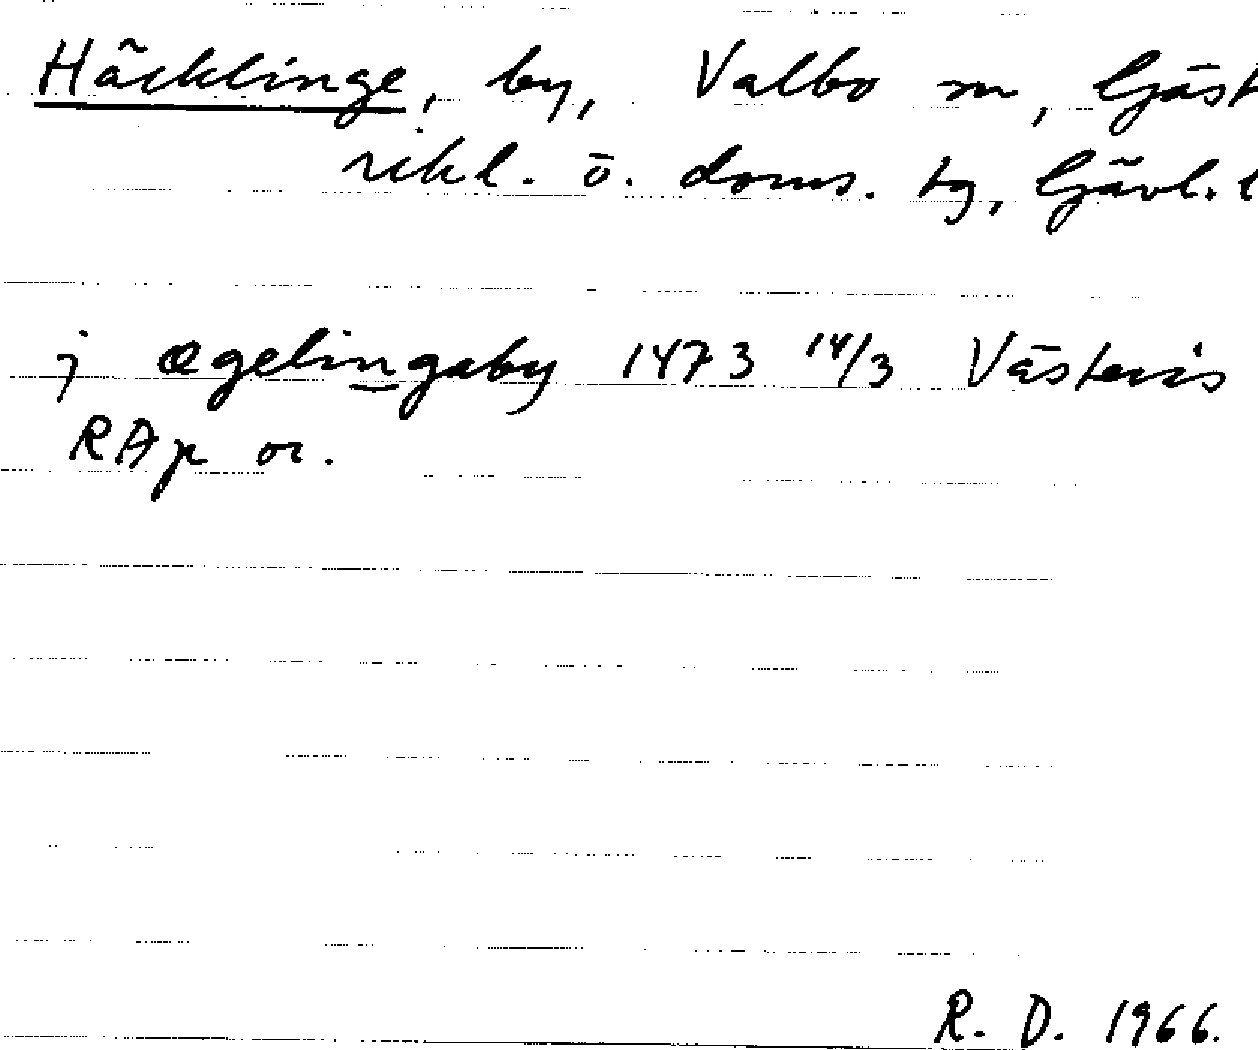 Häcklinge, by, Valbo sn, Gäst
rikl. ö. doms. tg, Gävl. l
j ægelingaby 1473 14/3 Västerås
RAp or.
R. D. 1966.